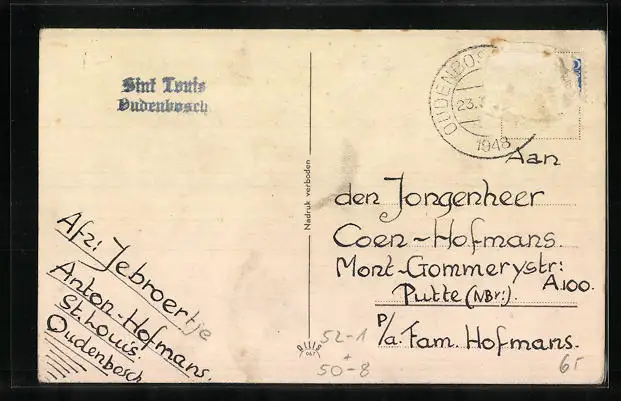 Sint Louis
Oudenbosch
OUDENBOS
23.
1948
Nadruk verboden
Aan
den Jongenheer
Coen-Hofmans.
Mont-Gommerystr:
A100.
Putte (NBr:).
P/a. Fam. Hofmans.
Afz: Jebroertje
Anton-Hofmans.
St. Louis.
Oudenbosch
52-1
+
50-8
65